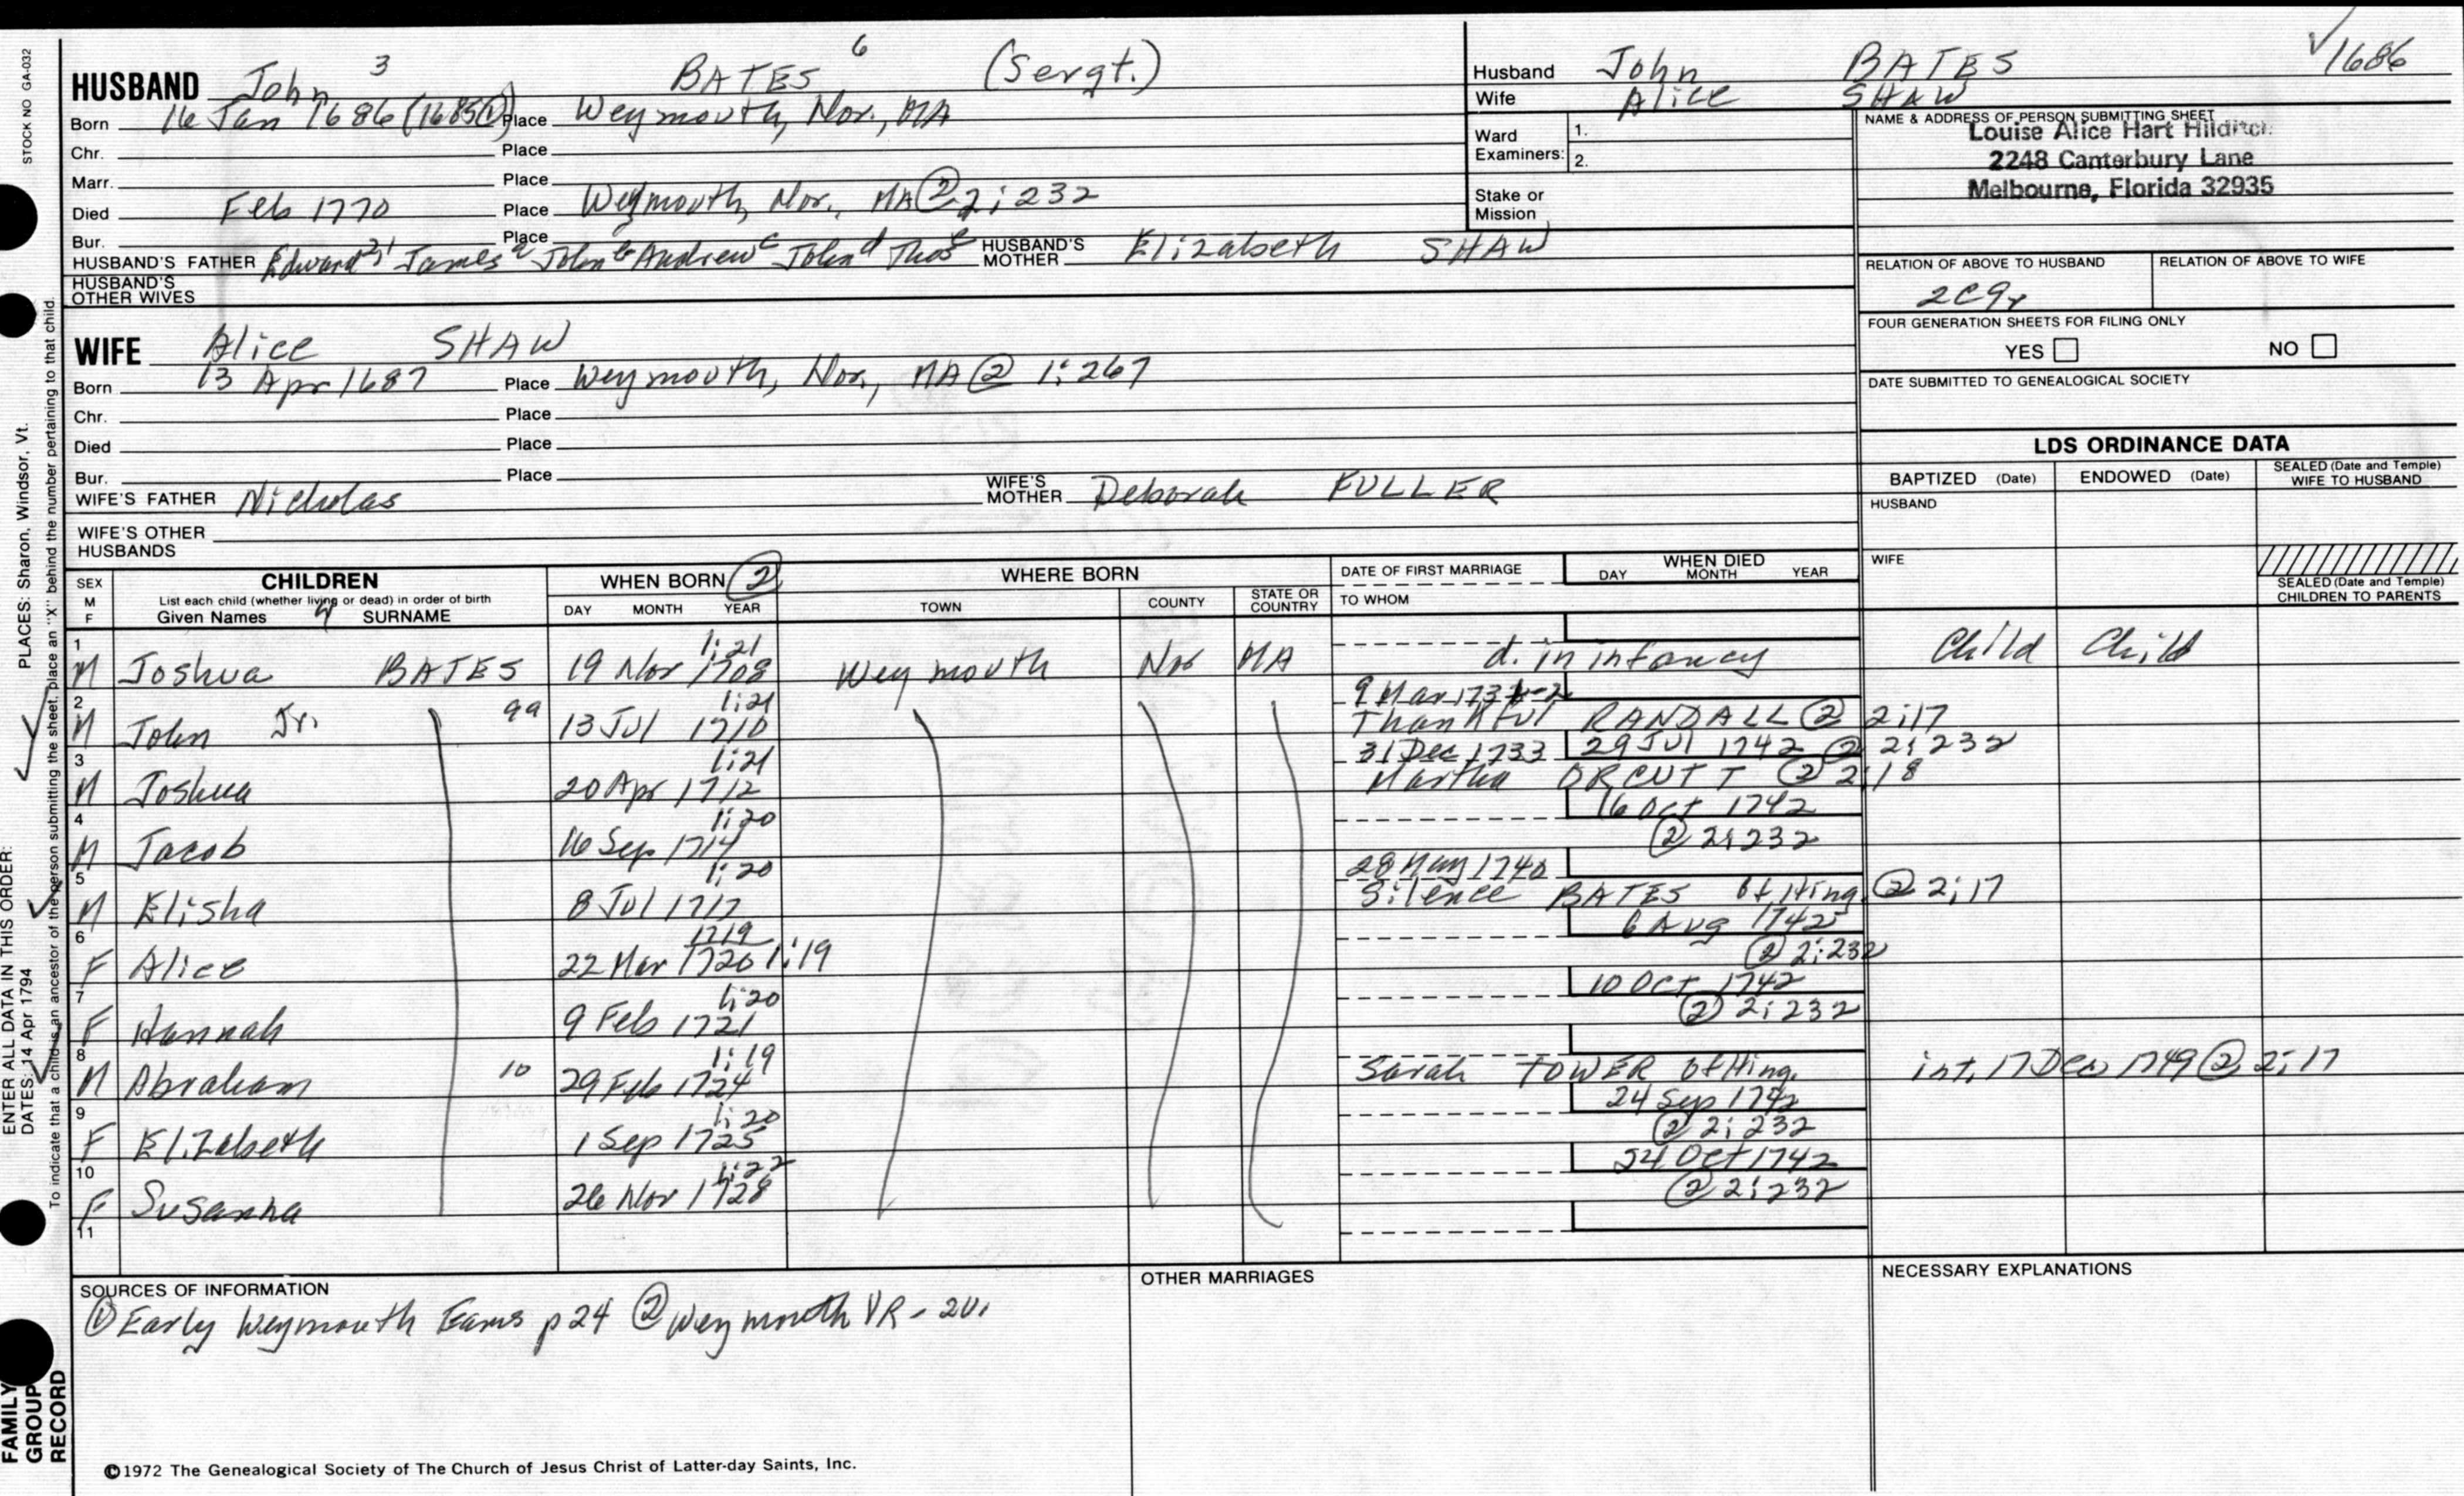 STOCK NO GA-032
HUSBAND John 3 BATES 6 (Sergt.)
Born 16 Jan 1686 (1685①) Place Weymouth, Nor., MA
Chr. Place
Marr. Place
Died Feb 1770 Place Weymouth, Nor., MA ② 2:232
Bur. Place
HUSBAND'S FATHER Edward James John Andrew John Thos HUSBAND'S MOTHER Elizabeth SHAW
HUSBAND'S OTHER WIVES
WIFE Alice SHAW
Born 13 Apr 1687 Place Weymouth, Nor., MA ② 1:267
Chr. Place
Died Place
Bur. Place
WIFE'S FATHER Nicholas WIFE'S MOTHER Deborah FULLER
WIFE'S OTHER HUSBANDS
Husband John BATES 1686
Wife Alice SHAW
Ward Examiners: 1. 2.
Stake or Mission
NAME & ADDRESS OF PERSON SUBMITTING SHEET
Louise Alice Hart Hilditch
2248 Canterbury Lane
Melbourne, Florida 32935
RELATION OF ABOVE TO HUSBAND RELATION OF ABOVE TO WIFE
2C9r
FOUR GENERATION SHEETS FOR FILING ONLY
YES NO
DATE SUBMITTED TO GENEALOGICAL SOCIETY
LDS ORDINANCE DATA
BAPTIZED (Date) ENDOWED (Date) SEALED (Date and Temple) WIFE TO HUSBAND
HUSBAND
WIFE
SEALED (Date and Temple) CHILDREN TO PARENTS
SEX M F CHILDREN WHEN BORN ② WHERE BORN DATE OF FIRST MARRIAGE WHEN DIED
List each child (whether living or dead) in order of birth
Given Names SURNAME DAY MONTH YEAR TOWN COUNTY STATE OR COUNTRY TO WHOM DAY MONTH YEAR
1 1:21
M Joshua BATES 19 Nov 1708 Weymouth Nor MA d. in infancy Child Child
2 1:21 9 Mar
M John Jr. 99 13 Jul 1710 Thankful RANDALL ② 2:17
3 1:21 31 Dec 1733 29 Jul 1742 ② 2:232
M Joshua 20 Apr 1712 Martha ORCUTT ② 2:18
4 1:20 16 Oct 1742
M Jacob 16 Sep 1714 ② 2:232
5 1:20 28 May 1740
M Elisha 8 Jul 1717 Silence BATES of Hing. ② 2:17
6 1719 6 Aug 1742
F Alice 22 Mar 1720 1:19 ② 2:232
7 1:20 10 Oct 1742
F Hannah 9 Feb 1721 ② 2:232
8 1:19
M Abraham 10 29 Feb 1724 Sarah TOWER of Hing. int. 17 Dec 1749 ② 2:17
9 1:20 24 Sep 1742
F Elizabeth 1 Sep 1725 ② 2:232
10 1:22 24 Oct 1742
F Susanna 26 Nov 1728 ② 2:232
11
SOURCES OF INFORMATION
① Early Weymouth Fams p24 ② Weymouth VR - 2v.
OTHER MARRIAGES
NECESSARY EXPLANATIONS
©1972 The Genealogical Society of The Church of Jesus Christ of Latter-day Saints, Inc.
FAMILY GROUP RECORD
ENTER ALL DATA IN THIS ORDER:
DATES: 14 Apr 1794 PLACES: Sharon, Windsor, Vt.
To indicate that a child is an ancestor of the person submitting the sheet, place an "X" behind the number pertaining to that child.